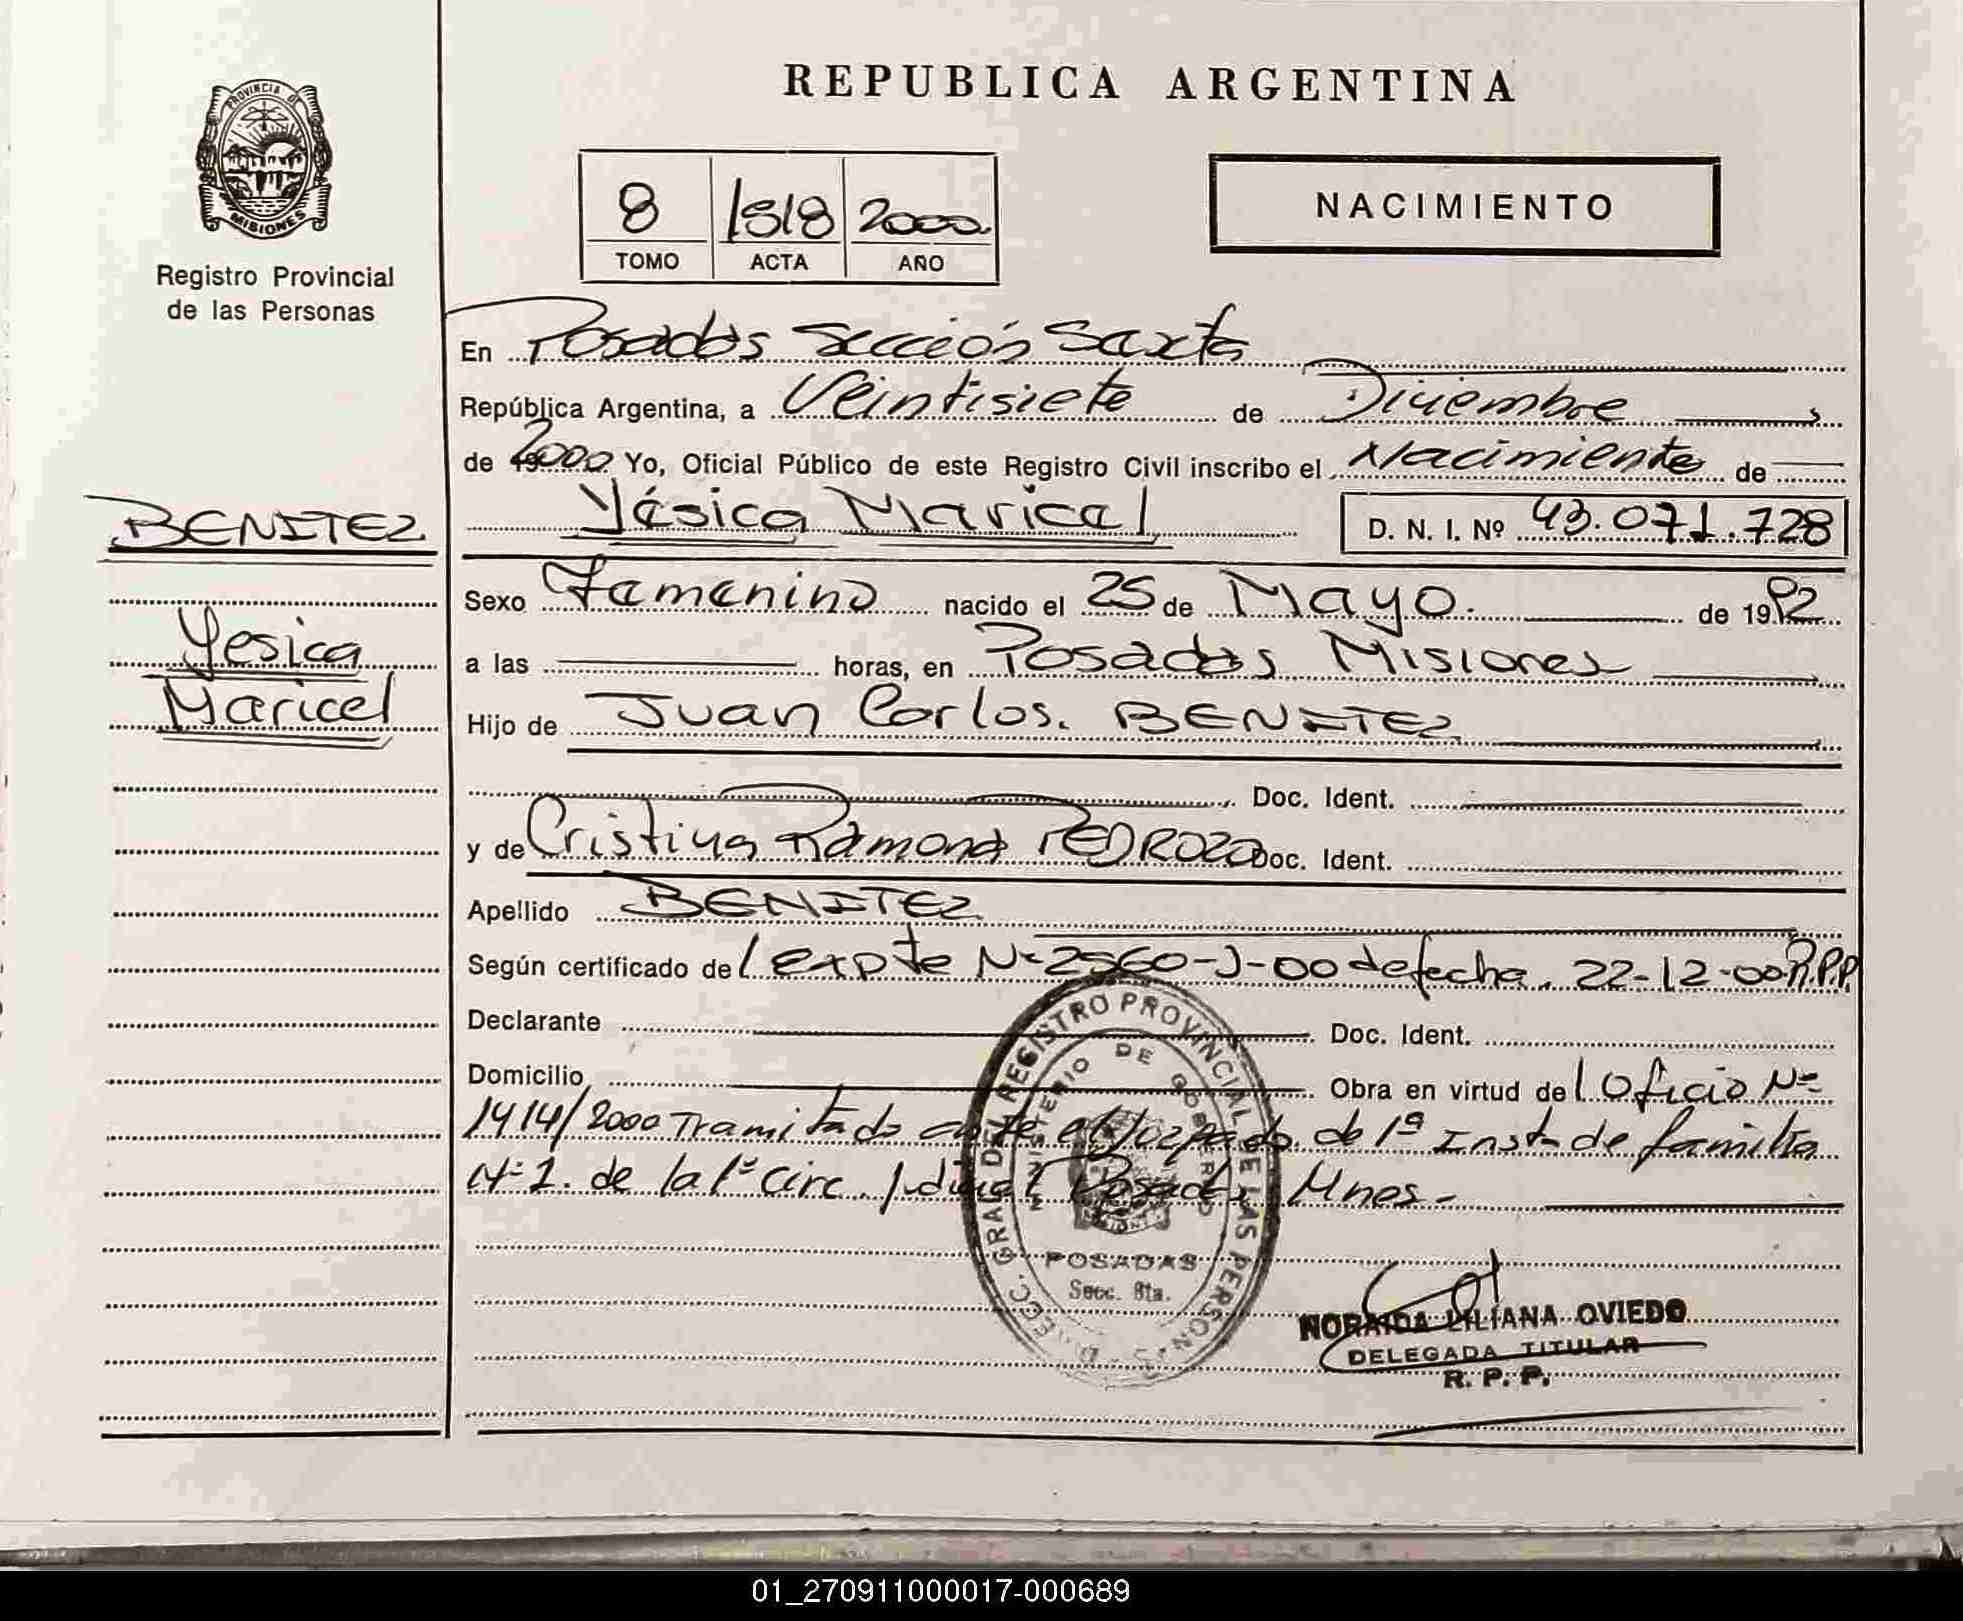 REPUBLICA ARGENTINA
PROVINCIA DE MISIONES
Registro Provincial
de las Personas
8 1818 2000
TOMO ACTA AÑO
NACIMIENTO
En Posadas Sección Sexta
República Argentina, a Veintisiete de Diciembre
de 2000 Yo, Oficial Público de este Registro Civil inscribo el Nacimiento de
BENITEZ
Yésica Maricel D. N. I. Nº 43.071.728
Sexo Femenino nacido el 25 de Mayo. de 1992
Yesica
a las horas, en Posadas Misiones
Maricel
Hijo de Juan Carlos. BENITEZ
Doc. Ident.
y de Cristina Ramona PEDROZO Doc. Ident.
Apellido BENITEZ
Según certificado de l expte Nº 2560-J-00 de fecha. 22-12-00 R.P.P.
Declarante Doc. Ident.
Domicilio Obra en virtud de l Oficio Nº
1414/2000 Tramitado ante el Juzgado de 1ª Inst. de familia
Nº 1. de la 1ª Circ. Judicial Posadas Mnes-
DIRECC. GRAL DEL REGISTRO PROVINCIAL DE LAS PERSONAS
MINISTERIO DE GOBIERNO
POSADAS
Secc. 6ta.
NORAIDA LILIANA OVIEDO
DELEGADA TITULAR
R. P. P.
01_270911000017-000689